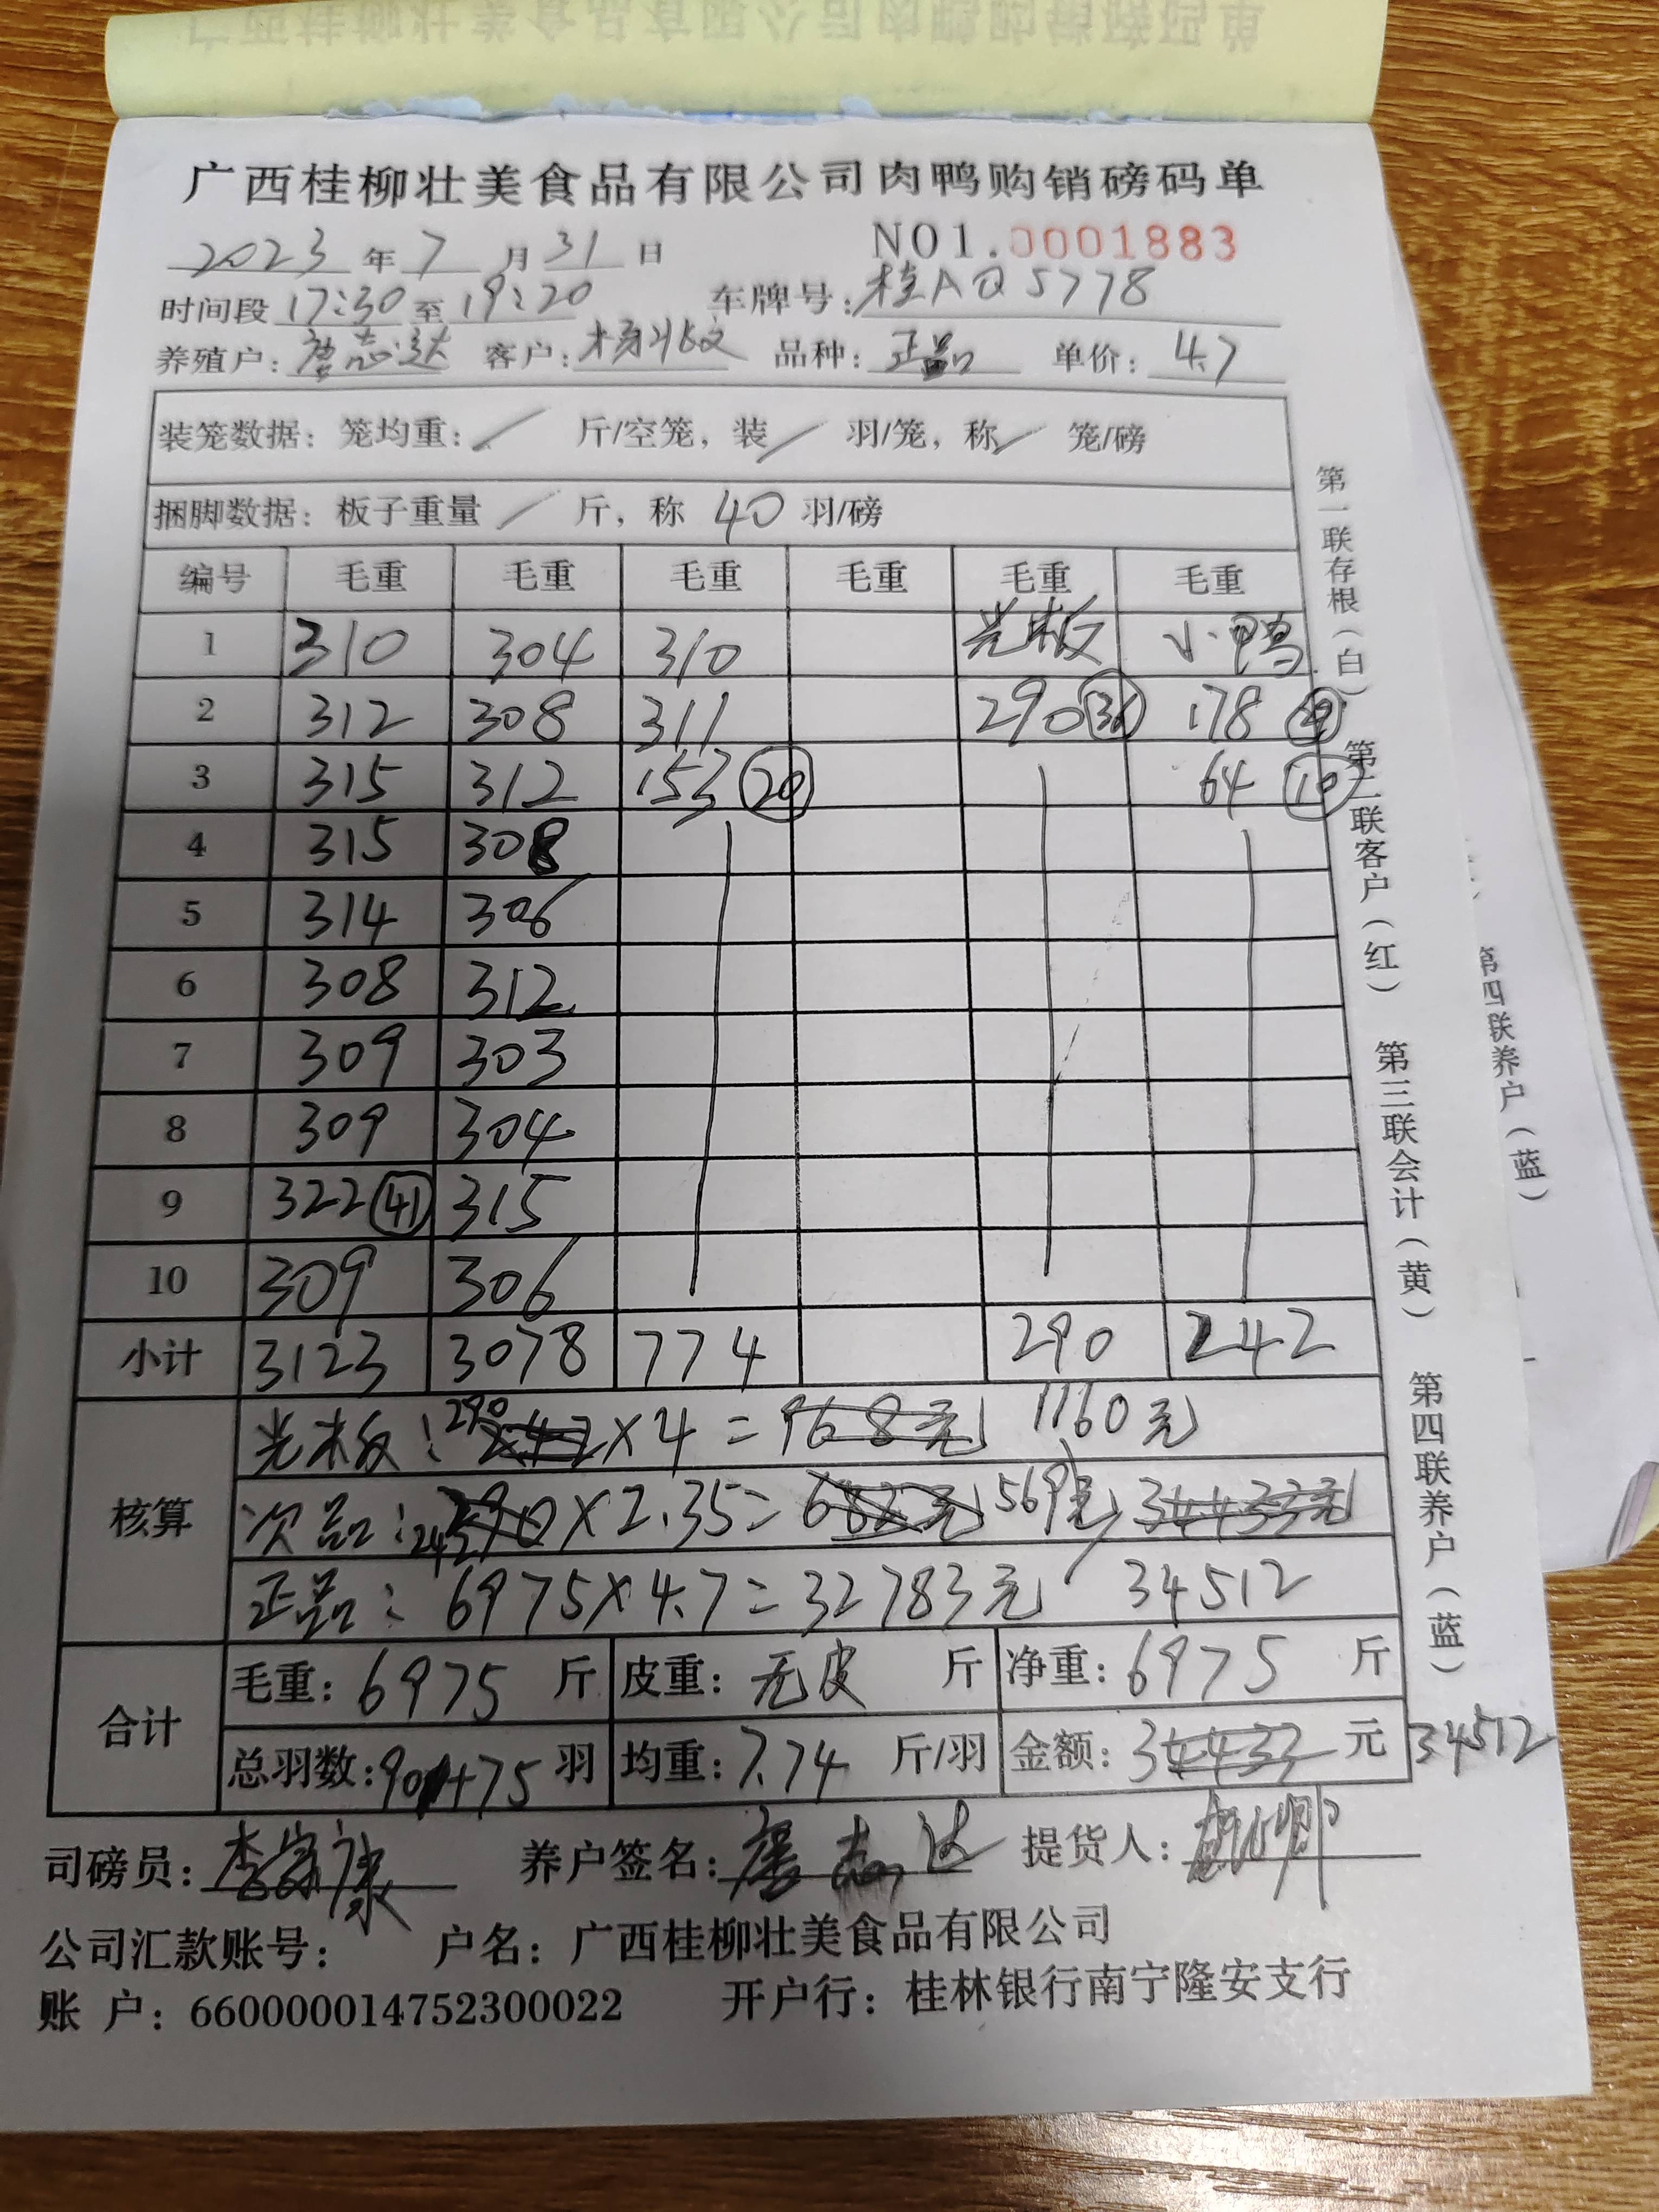 广西桂柳壮美食品有限公司肉鸭购销磅码单
2023年7月31日 NO1.0001883
时间段17:30至19:20 车牌号:桂AQ5778
养殖户:唐志达 客户: 品种:正品 单价:4.7
装笼数据:笼均重:/ 斤/空笼,装/ 羽/笼,称/ 笼/磅
捆脚数据:板子重量 / 斤,称 40 羽/磅
编号 毛重 毛重 毛重 毛重 毛重 毛重
1 310 304 310 光板 小鸭
2 312 308 311 290 178
3 315 312 153 20 64 10
4 315 308
5 314 306
6 308 312
7 309 303
8 309 304
9 322 41 315
10 309 306
小计 3123 3078 774 290 242
核算
光板:290 242×4=968元 1160元
次品:242 290×2.35=682元 569元 34433元
正品:6975×4.7=32783元 34512
合计
毛重:6975斤 皮重:无皮 斤 净重:6975斤
总羽数:901+75羽 均重:7.74斤/羽 金额:34433元 34512
司磅员:李家康 养户签名:唐志达 提货人:
公司汇款账号: 户名:广西桂柳壮美食品有限公司
账 户:660000014752300022 开户行:桂林银行南宁隆安支行
第一联存根(白) 第二联客户(红) 第三联会计(黄) 第四联养户(蓝)
第四联养户(蓝)